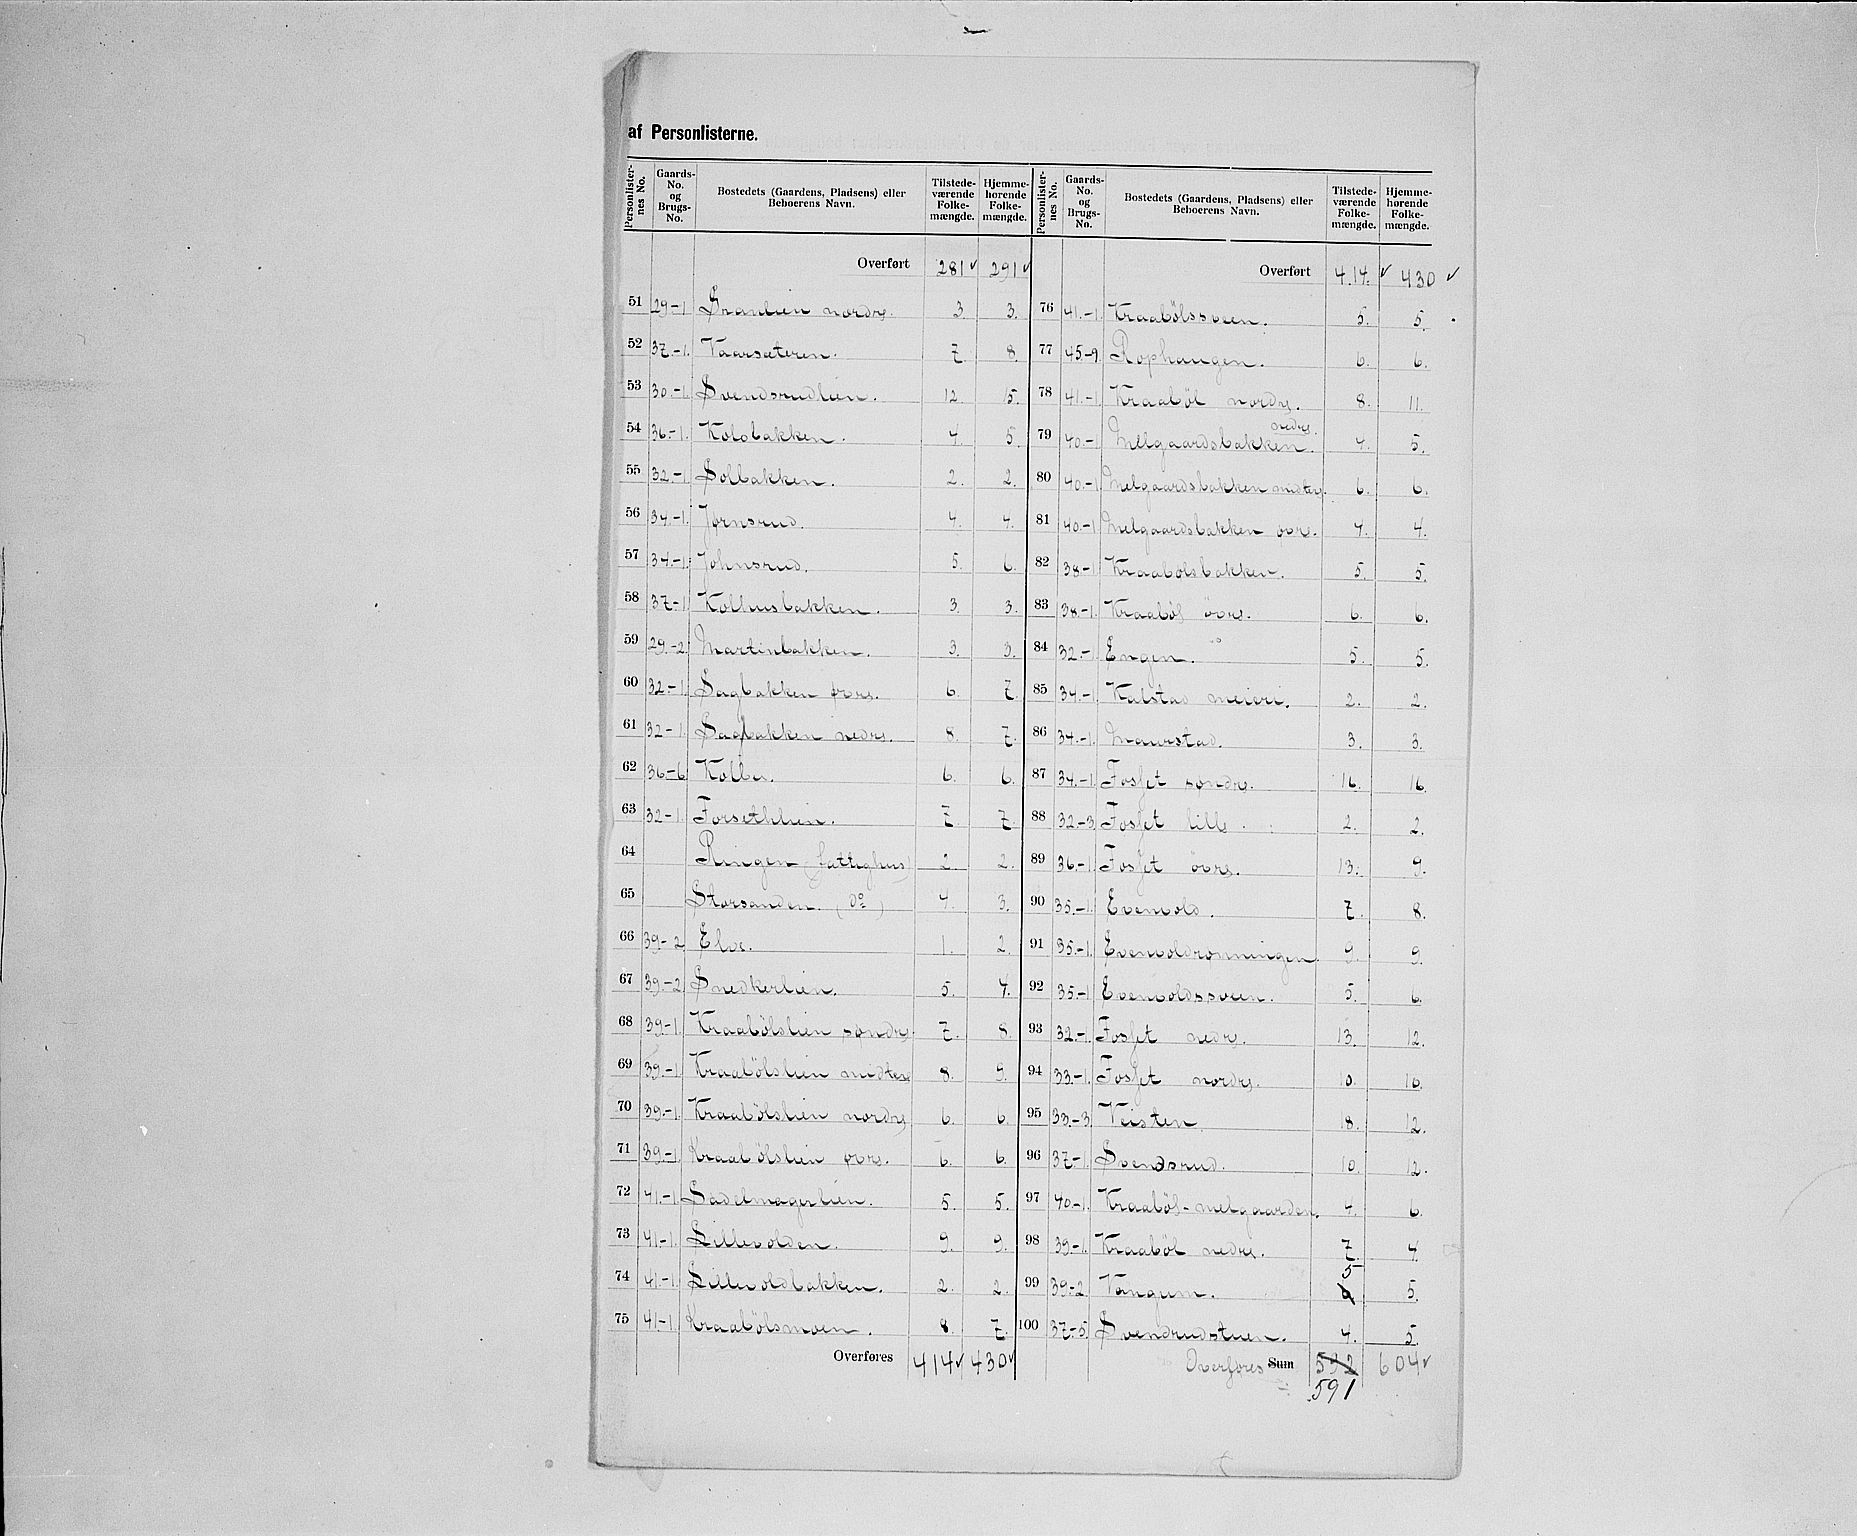 af Personlisterne.
Personlister-nes No. | Gaards-No. og Brugs-No. | Bostedets (Gaardens, Pladsens) eller Beboerens Navn. | Tilstede-værende Folke-mængde. | Hjemme-hørende Folke-mængde.
Overført 281 ✓ 291 ✓
51 29-1 Granlien nordre. 3. 3.
52 37-1. Vaarsæteren. 7. 8.
53 30-1. Svendsrudlien. 12. 15.
54 36-1. Kolobakken. 4. 5.
55 32-1. Solbakken. 2. 2.
56 34-1. Jørnsrud. 4. 4.
57 34-1. Johnsrud. 5. 6.
58 37-1. Kolhusbakken. 3. 3.
59 29-2. Martinbakken. 3. 3.
60 32-1. Sagbakken øvre. 6. 7.
61 32-1. Sagbakken nedre. 8. 7.
62 36-6 Kolbu. 6. 6.
63 32-1. Forsethlien. 7. 7.
64 Ringen (fattighus) 2. 2.
65 Storsanden. (do) 4. 3.
66 39-2 Elve. 1. 2.
67 39-2 Snedkerlien. 5. 4.
68 39-1. Kraabölslien søndre 7. 8.
69 39-1. Kraabölslien midtre 8. 9.
70 39-1. Kraabölslien nordre 6. 6.
71 39-1. Kraabölslien øvre. 6. 6.
72 41-1. Sadelmagerlien. 5. 5.
73 41-1. Lillevolden. 9. 9.
74 41-1. Lillevoldbakken. 2. 2.
75 41-1. Kraabölsmoen. 8. 7.
Overføres 414 ✓ 430 ✓
Personlister-nes No. | Gaards-No. og Brugs-No. | Bostedets (Gaardens, Pladsens) eller Beboerens Navn. | Tilstede-værende Folke-mængde. | Hjemme-hørende Folke-mængde.
Overført 414. ✓ 430 ✓
76 41-1. Kraabölssveen. 5. 5.
77 45-9 Rophaugen. 6. 6.
78 41-1. Kraaböl nordre. 8. 11.
79 40-1 Melgaardsbakken nedre. 4. 5.
80 40-1. Melgaardsbakken midtre. 6. 6.
81 40-1 Melgaardsbakken øvre. 4. 4.
82 38-1 Kraabölsbakken. 5. 5.
83 38-1. Kraaböl övre. 6. 6.
84 32-1 Engen. 5. 5.
85 34-1. Kalstad meieri. 2. 2.
86 34-1. Maurstad. 3. 3.
87 34-1. Fosset søndre. 16. 16.
88 32-3 Fosset lille. 2. 2.
89 36-1. Fosset övre. 13. 9.
90 35-1. Evenvold. 7. 8.
91 35-1. Evenvoldrønningen. 9. 9.
92 35-1 Evenvoldssveen. 5. 6.
93 32-1. Fosset nedre. 13. 12.
94 33-1. Fosset nordre. 10. 10.
95 33-3 Veisten. 18. 12.
96 37-1. Svendsrud. 10. 12.
97 40-1. Kraaböl-melgaarden. 4. 6.
98 39-1. Kraaböl nedre. 7. 4.
99 39-2 Vangum. 6 5 5.
100 37-5. Svendrudstuen. 4. 5.
Overføres Sum 592 604 ✓
591